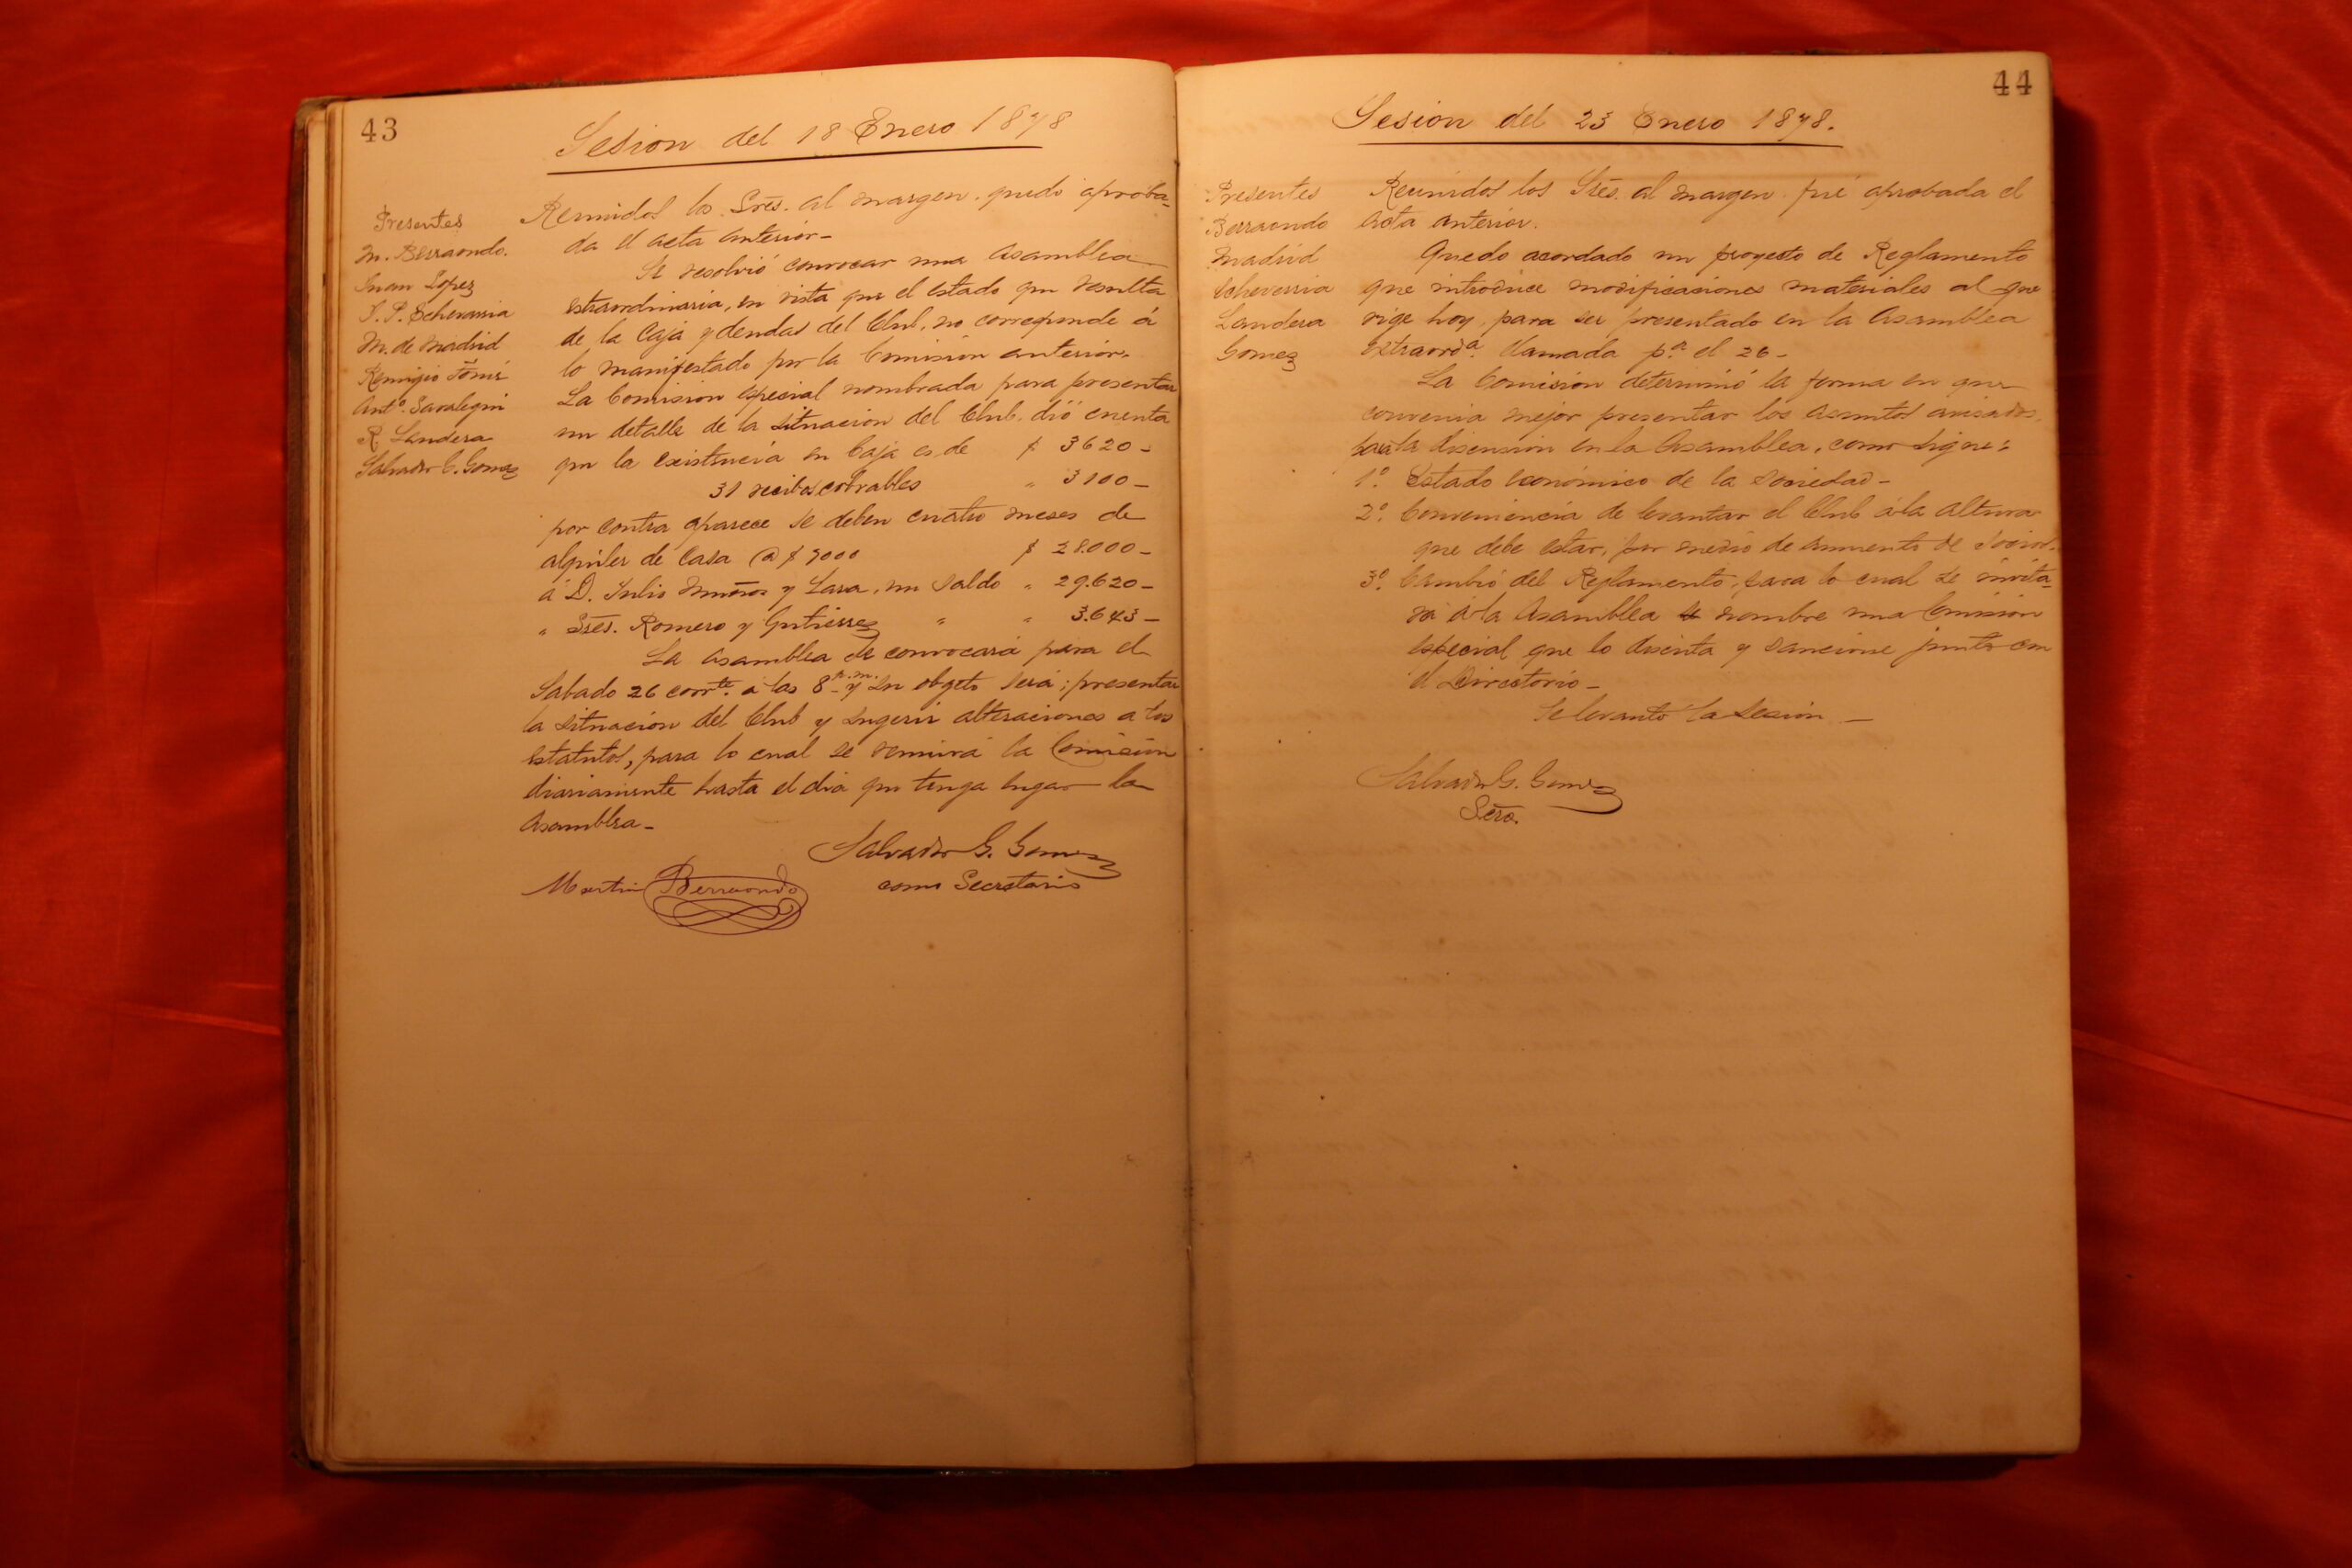 43
Sesion del 18 Enero 1878
Presentes
M. Berraondo.
Juan López
J. P. Echevarria
M. de Madrid
Remigio Tomé
Antº. Saralegui
R. Landera
Salvador G. Gomez
Reunidos los Sres. al margen. quedó aproba-
da el acta anterior-
Se resolvió convocar una asamblea
extraordinaria, en vista que el estado que resulta
de la Caja y deudas del Club, no corresponde á
lo manifestado por la Comision anterior.
La Comision especial nombrada para presentar
un detalle de la situacion del Club. dió cuenta
que la existencia en Caja es de $ 3620-
31 recibos cobrables " 3100-
por contra aparece se deben cuatro meses de
alquiler de Casa @ $ 7000 $ 28.000-
á D. Julio Muñoz y Lara, un saldo " 29.620-
" Sres. Romero y Gutierrez " " 3.643-
La asamblea se convocará para el
Sabado 26 corrte. á las 8 p.m. y su objeto será; presentar
la situacion del Club y sugerir alteraciones a los
estatutos, para lo cual se reunirá la Comision
diariamente hasta el dia que tenga lugar la
asamblea-
Salvador G. Gomez
como Secretario
Martin Berraondo
44
Sesion del 23 Enero 1878.
Presentes
Berraondo
Madrid
Echeverria
Landera
Gomez
Reunidos los Sres. al margen. fué aprobada el
acta anterior.
Quedo acordado un proyecto de Reglamento
que introduce modificaciones materiales al que
rige hoy, para ser presentado en la Asamblea
extraordª. llamada pª. el 26-
La Comision determinó la forma en que
convenia mejor presentar los asuntos avisados,
para la discusion en la Asamblea, como sigue:
1º. Estado económico de la Sociedad-
2º. Conveniencia de levantar el Club á la altura
que debe estar, por medio de aumento de Socios.
3º. Cambio del Reglamento, para lo cual se invita-
rá á la Asamblea se nombre una Comision
especial que lo discuta y sancione junto con
el Directorio-
Se levantó la sesion-
Salvador G. Gomez
Secro.